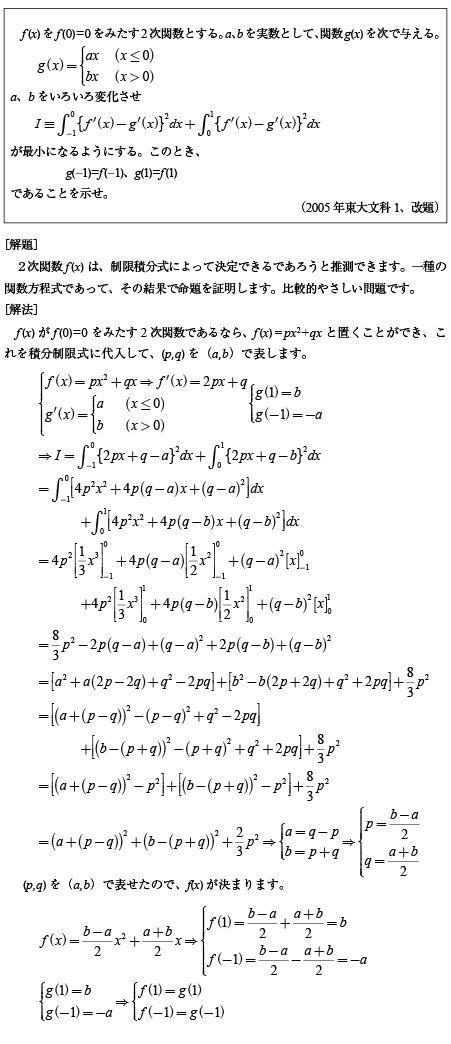 f(x)をf(0)=0をみたす2次関数とする。a、bを実数として、関数g(x)を次で与える。
g(x)={ax (x≤0)
bx (x>0)
a、bをいろいろ変化させ
I≡∫_{-1}^{0}{f′(x)−g′(x)}²dx+∫_{0}^{1}{f′(x)−g′(x)}²dx
が最小になるようにする。このとき、
g(−1)=f(−1)、g(1)=f(1)
であることを示せ。
(2005年東大文科1、改題)
[解題]
2次関数f(x)は、制限積分式によって決定できるであろうと推測できます。一種の
関数方程式であって、その結果で命題を証明します。比較的やさしい問題です。
[解法]
f(x)がf(0)=0をみたす2次関数であるなら、f(x)=px²+qxと置くことができ、こ
れを積分制限式に代入して、(p,q)を(a,b)で表します。
{f(x)=px²+qx⇒f′(x)=2px+q
g′(x)={a (x≤0)
b (x>0)
{g(1)=b
g(−1)=−a
⇒I=∫_{-1}^{0}{2px+q−a}²dx+∫_{0}^{1}{2px+q−b}²dx
=∫_{-1}^{0}[4p²x²+4p(q−a)x+(q−a)²]dx
+∫_{0}^{1}[4p²x²+4p(q−b)x+(q−b)²]dx
=4p²[1/3 x³]_{-1}^{0}+4p(q−a)[1/2 x²]_{-1}^{0}+(q−a)²[x]_{-1}^{0}
+4p²[1/3 x³]_{0}^{1}+4p(q−b)[1/2 x²]_{0}^{1}+(q−b)²[x]_{0}^{1}
=8/3 p²−2p(q−a)+(q−a)²+2p(q−b)+(q−b)²
=[a²+a(2p−2q)+q²−2pq]+[b²−b(2p+2q)+q²+2pq]+8/3 p²
=[(a+(p−q))²−(p−q)²+q²−2pq]
+[(b−(p+q))²−(p+q)²+q²+2pq]+8/3 p²
=[(a+(p−q))²−p²]+[(b−(p+q))²−p²]+8/3 p²
=(a+(p−q))²+(b−(p+q))²+2/3 p²⇒{a=q−p
b=p+q⇒{p=(b−a)/2
q=(a+b)/2
(p,q)を(a,b)で表せたので、f(x)が決まります。
f(x)=(b−a)/2 x²+(a+b)/2 x⇒{f(1)=(b−a)/2+(a+b)/2=b
f(−1)=(b−a)/2−(a+b)/2=−a
{g(1)=b
g(−1)=−a⇒{f(1)=g(1)
f(−1)=g(−1)